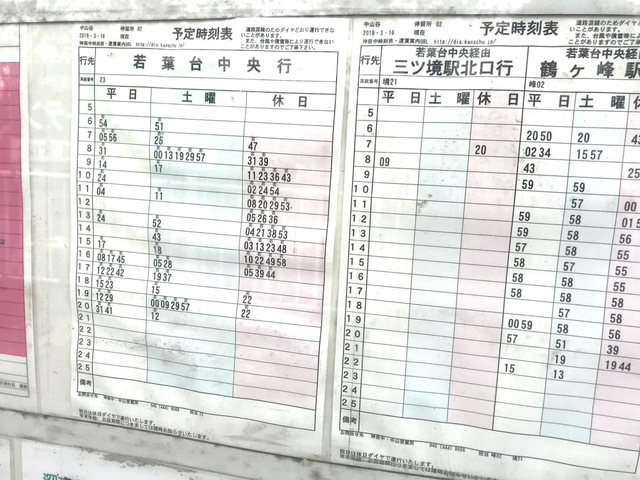 中山谷 停留所 02 予定時刻表
2019-3-16 現在
神奈中時刻表・運賃案内URL http://dia.kanachu.jp/
道路混雑のためダイヤどおり運行できないことがあります。
また、台風や積雪等により運行できないことがありますのでご了承下さい。
行先 若葉台中央行
系統番号 23
平日 土曜 休日
5
6 54 51
7 05 56 25 47
8 31 00 13 19 29 57 31 39
9 14 17 11 23 36 43
10 24 02 24 54
11 04 11 08 20 29 53
12 05 26 36
13 24 52 04 21 38 53
14 43 03 13 23 48
15 17 18 10 22 49 58
16 08 17 45 05 28 05 39 44
17 12 22 42 19 37
18 15 23 15
19 12 29 00 09 29 57 22
20 31 41 12 22
21
22
23
24
25
備考
お問合せ先 神奈中・中山営業所 045 (444) 8666 担当 23
祝日は休日ダイヤで運行いたします。
年末年始、お盆期間につきましては随時お知らせいたします。
中山谷 停留所 02 予定時刻表
2019-3-16 現在
神奈中時刻表・運賃案内URL http://dia.kanachu.jp/
行先 若葉台中央経由 三ツ境駅北口行 若葉台中央経 鶴ヶ峰駅
系統番号 境21 峰02
平日 土曜 休日 平日 土曜
5
6
7 20 20 50 20 43
8 09 02 34 15 57
9 43 25
10 59 59
11 57 00
12 59 58
13 59 58 56
14 55 58 55
15 58 57 55
16 58 55 55
17 58 57 55
18 57 58
19 00 59 58 56
20 57 51 39
21 19 19 44
22 15 13
23
24
25
備考
お問合せ先 神奈中・中山営業所 045 (444) 8666 担当 峰02 境21
祝日は休日ダイヤで運行いたします。
年末年始、お盆期間につきましては随時お知らせいたします